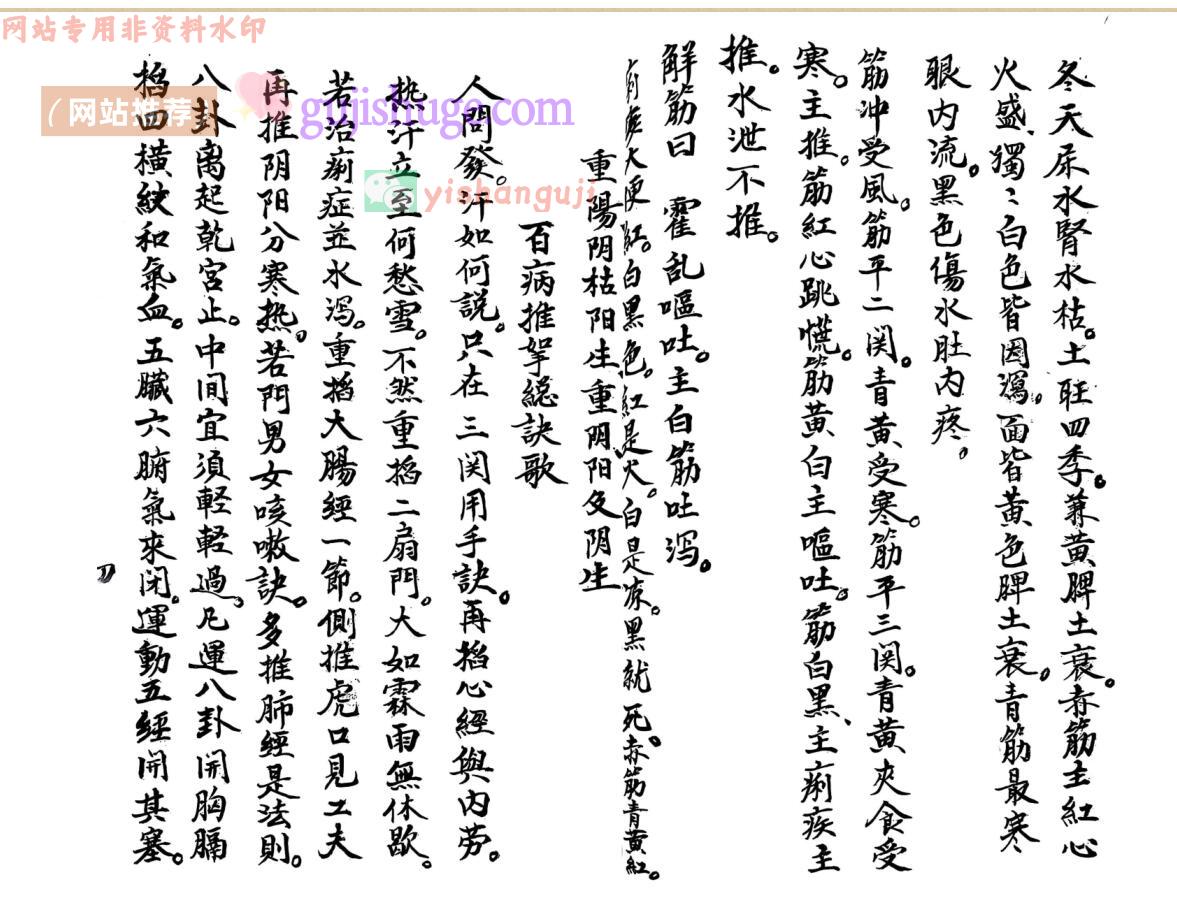 网站专用非资料水印
（网站推荐）
gujishuge.com
yishanguji
冬天尿水腎水枯。土旺四季。兼黄脾土衰。赤筋主紅心
火盛、獨〻白色皆因瀉。面皆黄色脾土衰。青筋最寒
眼内流。黑色傷水肚内疼。
筋沖受風。筋平二関。青黄受寒。筋平三関。青黄夾食受
寒。主推。筋紅心跳慌。筋黄白主嘔吐。筋白黑、主痢疾主
推。水泄不推。
解筋曰 霍乱嘔吐。主白筋吐泻。
大便紅。白黑色。紅是火。白是凉。黑就死。赤筋青黄紅。
重陽阴枯阳生重阴阳反阴生
百病推拏総訣歌
人問發。汗如何説。只在三関用手訣。再掐心經與内劳。
热汗立至何愁雪。不然重掐二扇門。大如霖雨無休歇。
若治痢症並水泻。重掐大腸經一節。側推虎口見工夫
再推阴阳分寒热。若問男女咳嗽訣。多推肺經是法則。
八卦离起乾宫止。中间宜須輕輕過。凡運八卦開胸膈
掐四横紋和氣血。五臟六腑氣來闭。運動五經開其塞。